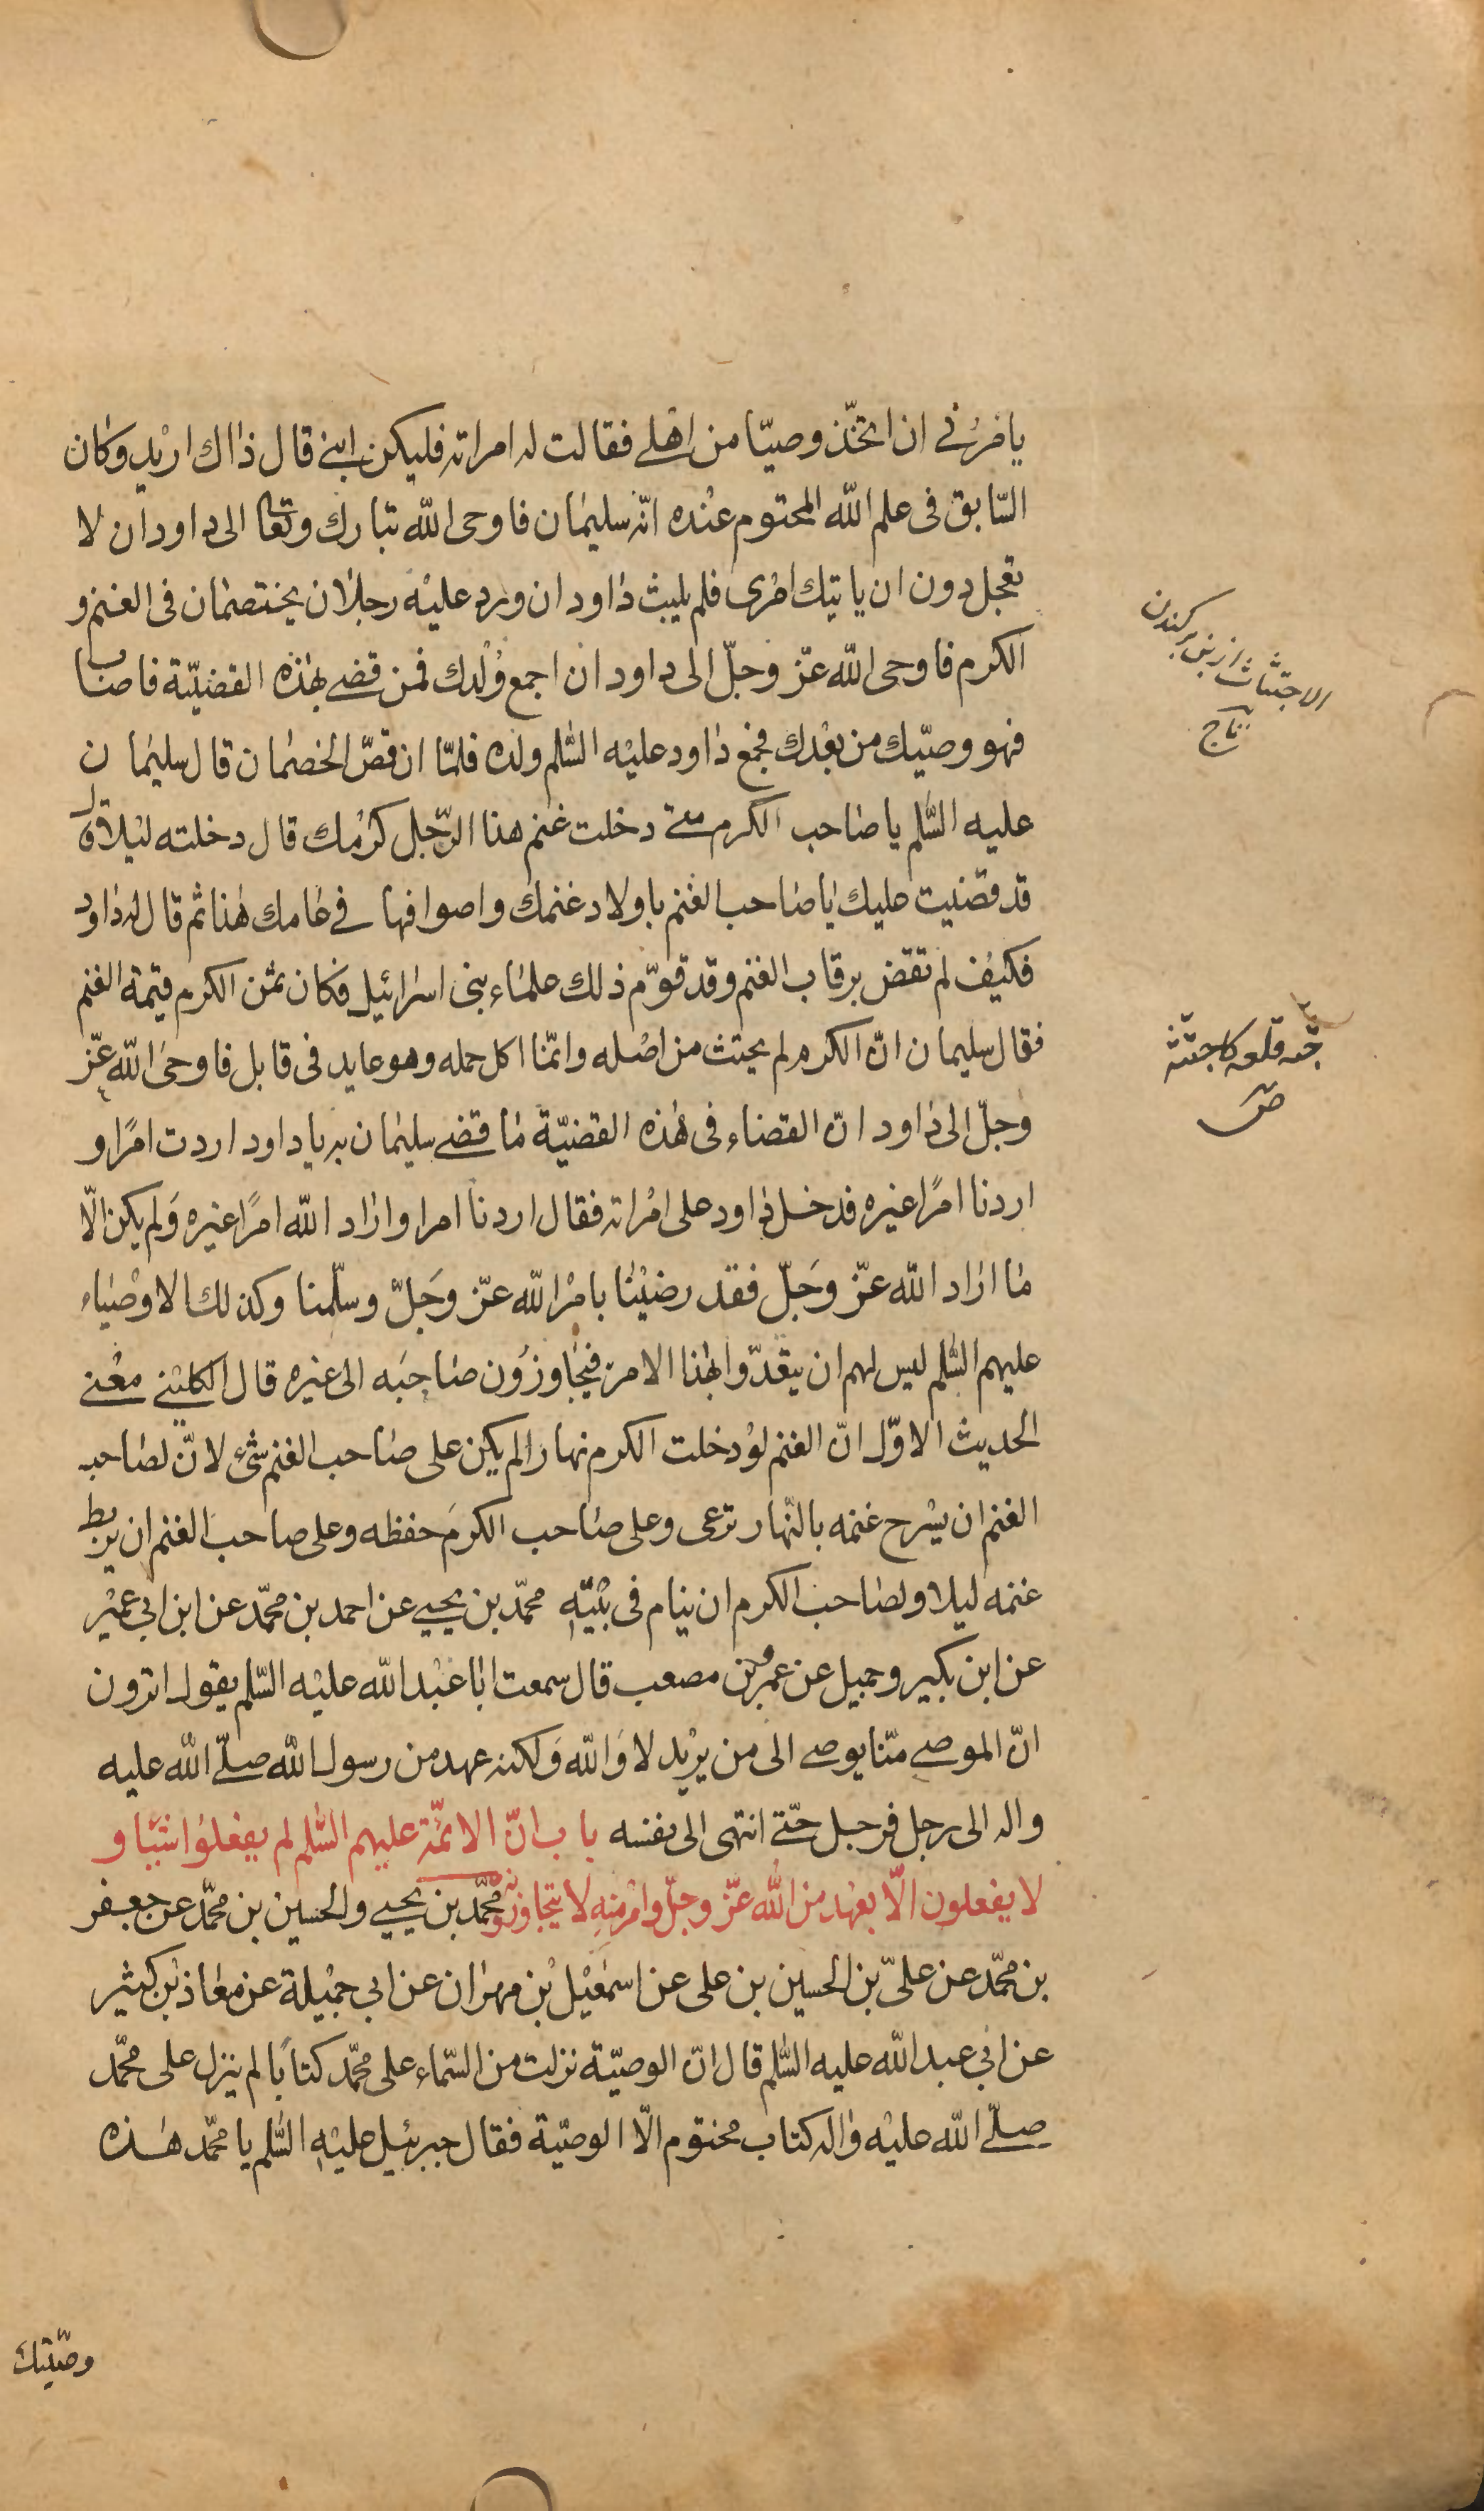 يامرنى ان اتخّذ وصيّا من اهلى فقالت له امراته فليكن ابنى قال ذاك اريد وكان
السّابق فى علم الله المحتوم عنده انّه سليمان فاوحى الله تبارك وتعا الى داود ان لا
تعجل دون ان ياتيك امرى فلم يلبث داود ان ورد عليه رجلان يختصمان فى الغنم و
الكرم فاوحى الله عزّ وجلّ الى داود ان اجمع وُلْدك فمن قضى بهذه القضيّة فاصاب
فهو وصيّك من بعدك فجمع داود عليه السّلم ولده فلمّا ان قصّ الخصمان قال سليمان
عليه السّلم يا صاحب الكرم متى دخلت غنم هذا الرّجل كرمك قال دخلته ليلا قال
قد قضيت عليك يا صاحب الغنم باولاد غنمك واصوافها فى عامك هذا ثم قال له داود
فكيف لم تقض برقاب الغنم وقد قوّم ذلك علماء بنى اسرائيل فكان ثمن الكرم قيمة الغنم
فقال سليمان انّ الكرم لم يجتث من اصله وانّما اكل حمله وهو عايد فى قابل فاوحى الله عزّ
وجلّ الى داود انّ القضاء فى هذه القضيّة ما قضى سليمان به يا داود اردت امرًا و
اردنا امرًا غيره فدخل داود على امراته فقال اردنا امرا واراد الله امرًا غيره ولم يكن الّا
ما اراد الله عزّ وجَلّ فقد رضينا بامر الله عزّ وجَلّ وسلّمنا وكذلك الاوصياء
عليهم السّلم ليس لهم ان يتعدّوا بهذا الامر فيجاوزون صاحبه الى غيره قال الكلينى معنى
الحديث الاوّل انّ الغنم لو دخلت الكرم نهارا لم يكن على صاحب الغنم شئ لانّ لصاحب
الغنم ان يسرح غنمه بالنّهار ترعى وعلى صاحب الكرم حفظه وعلى صاحب الغنم ان يربط
غنمه ليلا ولصاحب الكرم ان ينام فى بيته محمّد بن يحيى عن احمد بن محمّد عن ابن ابى عمير
عن ابن بكير وجميل عن عمرو بن مصعب قال سمعت ابا عبد الله عليه السّلم يقول اترون
انّ الموصى منّا يوصى الى من يريد لا والله ولكنه عهد من رسول الله صلّى الله عليه
واله الى رجل فرجل حتّى انتهى الى نفسه باب انّ الائمّة عليهم السّلم لم يفعلوا شيئا و
لا يفعلون الّا بعهد من الله عزّ وجلّ وامر منه لا يتجاوزونه محمّد بن يحيى والحسين بن محمّد عن جعفر
بن محمّد عن علىّ بن الحسين بن على عن اسمعيل بن مهران عن ابى جميلة عن معاذ بن كثير
عن ابى عبد الله عليه السّلم قال انّ الوصيّة نزلت من السّماء على محمّد كتابًا لم ينزل على محمّد
صلّى الله عليه واله كتاب مختوم الّا الوصيّة فقال جبرئيل عليه السّلم يا محمّد هذه
وصيّتك
الاجتثاث از بن بركندن
تاج
جثه قلعه كاجتثه
ص